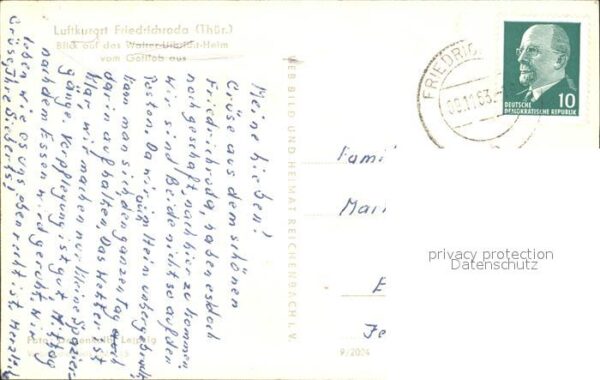 Luftkurort Friedrichroda (Thür.)
Blick auf das Walter-Ulbricht-Heim
vom Gottlob aus
Meine Lieben!
Grüße aus dem schönen
Friedrichroda, haben es doch
noch geschafft nach hier zu kommen,
wir sind Beide nicht so auf den
Posten. Da wir im Heim untergebracht,
kann man sich den ganzen Tag auch
darin aufhalten. Das Wetter ist
klar, wir machen nur kleine Spazier-
gänge. Verpflegung ist gut. Mittag
nach dem Essen wird geruht. Wir
leben wie es uns eben recht ist. Herzlich
Grüße Ihre
VEB BILD UND HEIMAT REICHENBACH I. V.
Foto: Leipzig
9/2024
FRIEDRIC
DEUTSCHE
DEMOKRATISCHE REPUBLIK
10
Famil
Mar
privacy protection
Datenschutz